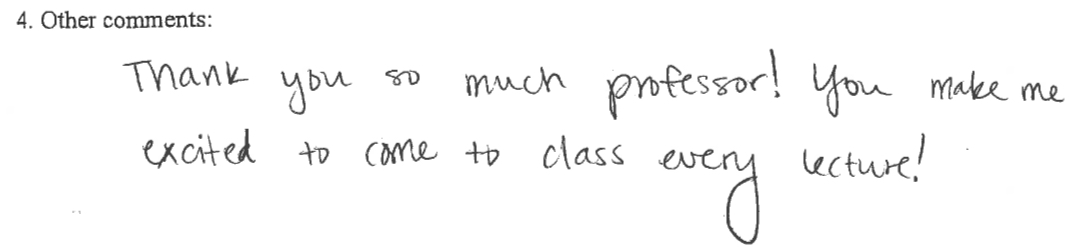 4. Other comments:
Thank you so much professor! You make me
excited to come to class every lecture!